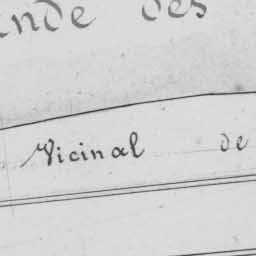 des
Vicinal de